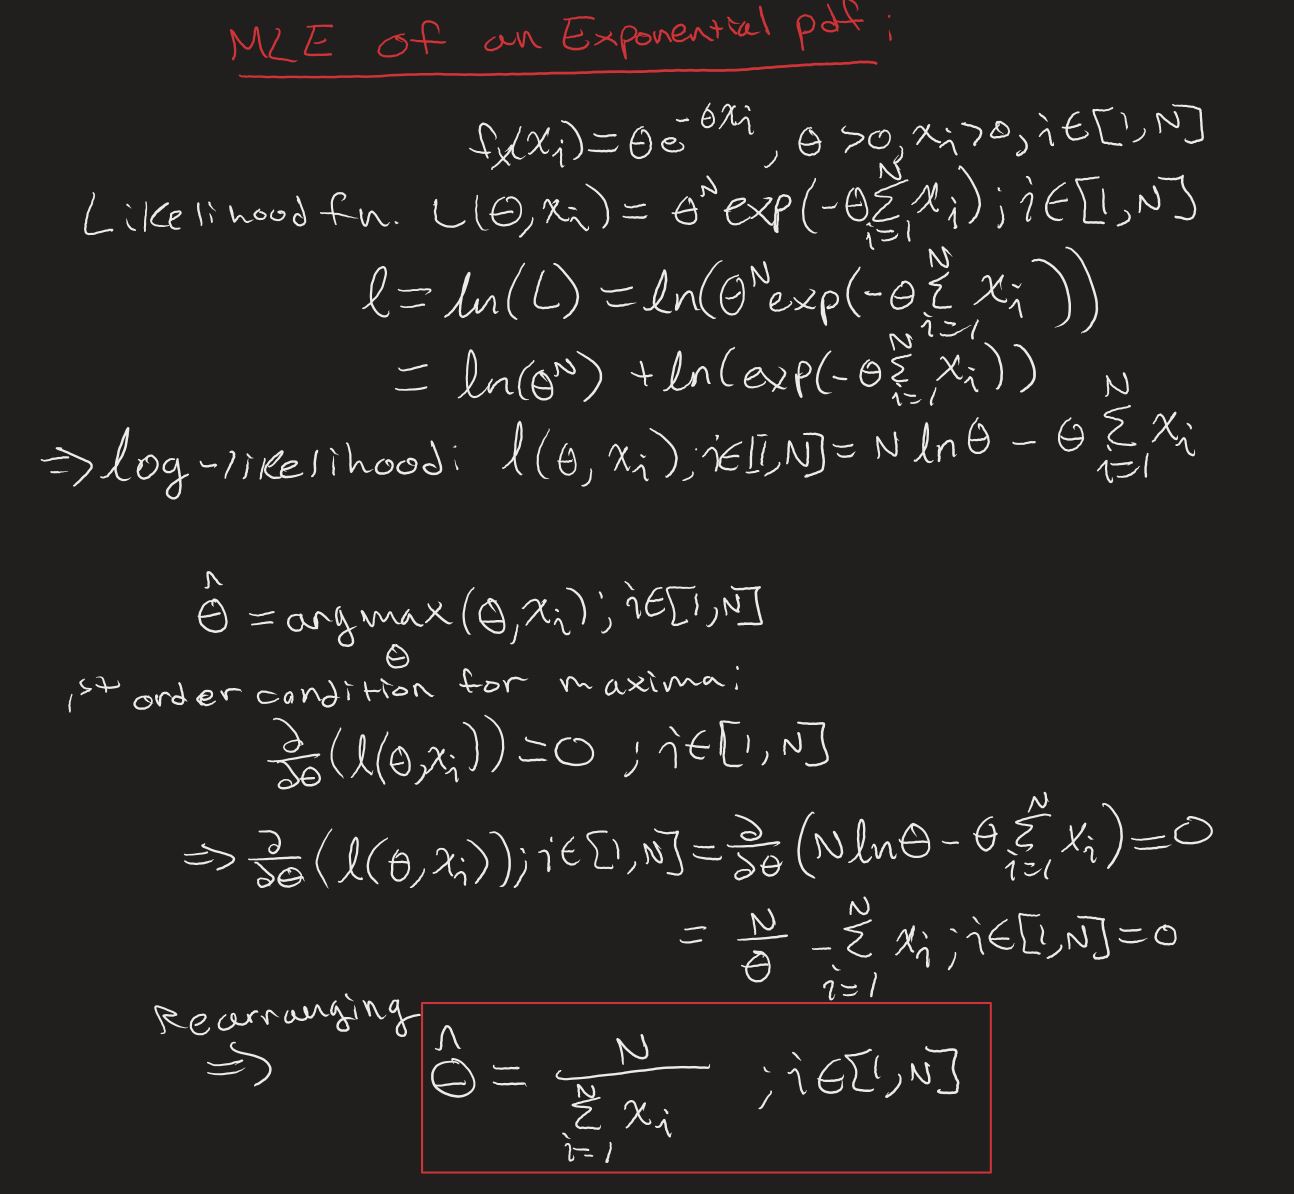 MLE of an Exponential pdf:
fₓ(xᵢ) = θe^{-θxᵢ}, θ >0, xᵢ>0, i∈[1,N]
Likelihood fn. L(θ,xᵢ) = θ^N exp(-θ∑_{i=1}^{N} xᵢ); i∈[1,N]
l = ln(L) = ln(θ^N exp(-θ∑_{i=1}^{N} xᵢ))
= ln(θ^N) + ln(exp(-θ∑_{i=1}^{N} xᵢ))
⇒ log-likelihood: l(θ, xᵢ); i∈[1,N] = N lnθ - θ∑_{i=1}^{N} xᵢ
θ̂ = argmax_θ (θ,xᵢ); i∈[1,N]
1st order condition for maxima:
∂/∂θ (l(θ,xᵢ)) = 0 ; i∈[1,N]
⇒ ∂/∂θ (l(θ,xᵢ)); i∈[1,N] = ∂/∂θ (N lnθ - θ∑_{i=1}^{N} xᵢ) = 0
= N/θ - ∑_{i=1}^{N} xᵢ ; i∈[1,N] = 0
Rearranging
⇒ θ̂ = N/∑_{i=1}^{N} xᵢ ; i∈[1,N]